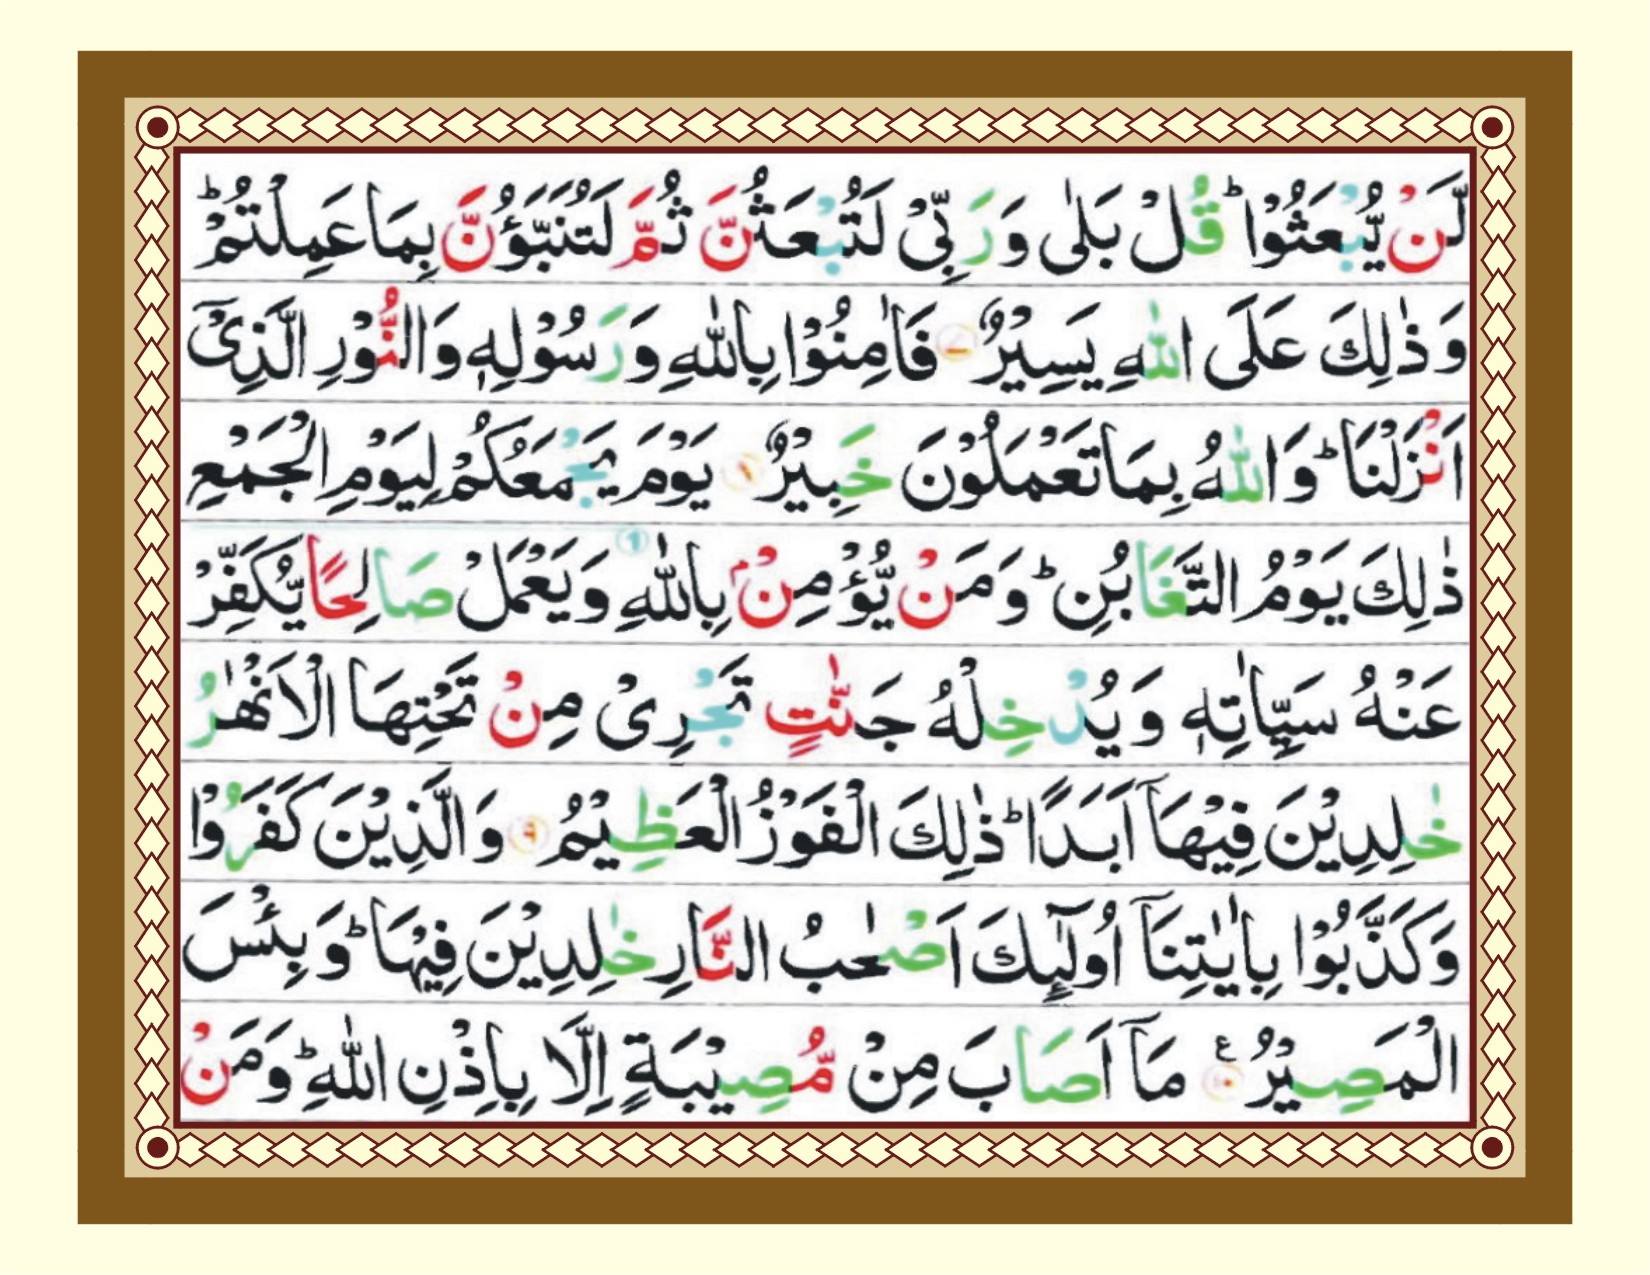 لَّنۡ يُّبۡعَثُوۡا ؕ قُلۡ بَلٰى وَرَبِّىۡ لَتُبۡعَثُنَّ ثُمَّ لَتُنَبَّؤُنَّ بِمَا عَمِلۡتُمۡ ؕ
وَذٰلِكَ عَلَى اللّٰهِ يَسِيۡرٌ ﴿۷﴾ فَاٰمِنُوۡا بِاللّٰهِ وَرَسُوۡلِهٖ وَالنُّوۡرِ الَّذِىۡۤ
اَنۡزَلۡنَا ؕ وَاللّٰهُ بِمَا تَعۡمَلُوۡنَ خَبِيۡرٌ ﴿۸﴾ يَوۡمَ يَجۡمَعُكُمۡ لِيَوۡمِ الۡجَمۡعِ
ذٰلِكَ يَوۡمُ التَّغَابُنِ ؕ وَمَنۡ يُّؤۡمِنۡۢ بِاللّٰهِ وَيَعۡمَلۡ صَالِحًا يُّكَفِّرۡ
عَنۡهُ سَيِّاٰتِهٖ وَيُدۡخِلۡهُ جَنّٰتٍ تَجۡرِىۡ مِنۡ تَحۡتِهَا الۡاَنۡهٰرُ
خٰلِدِيۡنَ فِيۡهَاۤ اَبَدًا ؕ ذٰلِكَ الۡفَوۡزُ الۡعَظِيۡمُ ﴿۹﴾ وَالَّذِيۡنَ كَفَرُوۡا
وَكَذَّبُوۡا بِاٰيٰتِنَاۤ اُولٰٓٮِٕكَ اَصۡحٰبُ النَّارِ خٰلِدِيۡنَ فِيۡهَا ؕ وَبِئۡسَ
الۡمَصِيۡرُ ﴿۱۰﴾ ع مَاۤ اَصَابَ مِنۡ مُّصِيۡبَةٍ اِلَّا بِاِذۡنِ اللّٰهِ ؕ وَمَنۡ